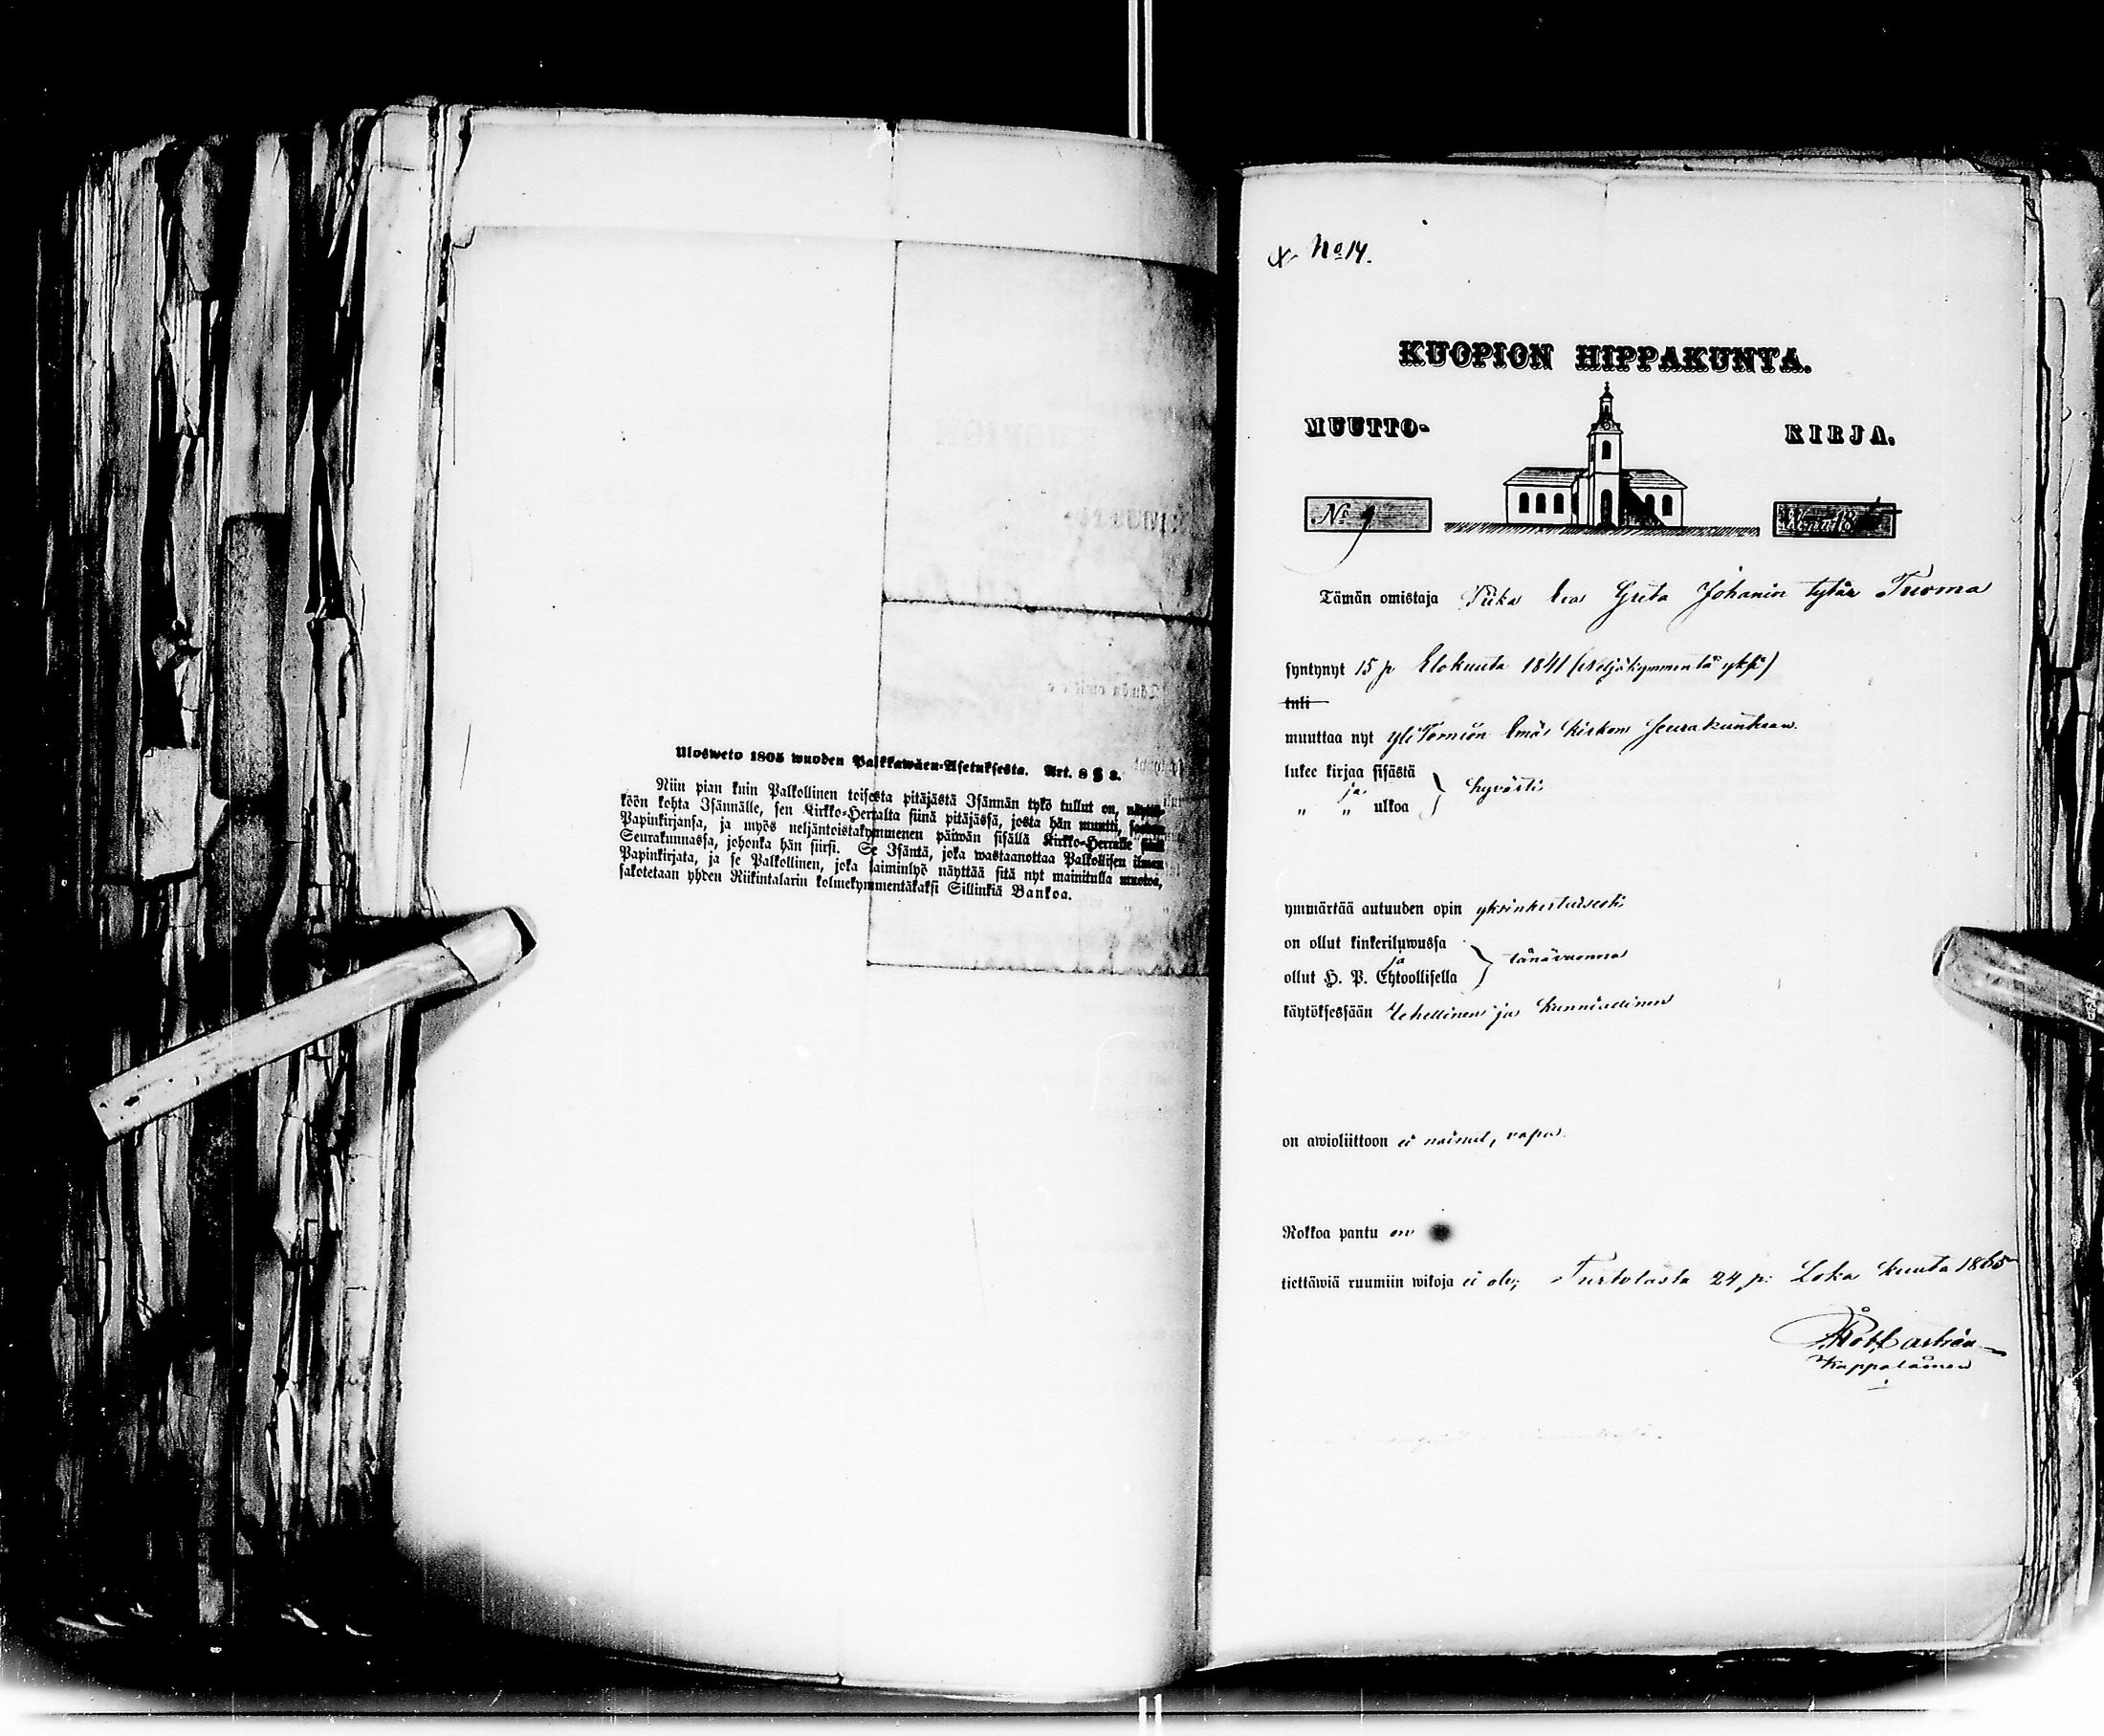 Ulosweto 1805 wuoden Palkkawäen-Asetuksesta. Art. 8 § 2.
Niin pian kuin Palkollinen toisesta pitäjästä Isännän tykö tullut on, näyttä-
köön kohta Isännälle, sen Kirkko-Herralta siinä pitäjässä, josta hän muutti, saadun
Papinkirjansa, ja myös neljäntoistakymmenen päiwän sisällä Kirkko-Herralle siinä
Seurakunnassa, johonka hän siirsi. Se Isäntä, joka wastaanottaa Palkollisen ilman
Papinkirjata, ja se Palkollinen, joka laiminlyö näyttää sitä nyt mainitulla muotoa,
sakotetaan yhden Riikintalarin kolmekymmentäkaksi Sillinkiä Bankoa.
No 14.
KUOPION HIPPAKUNTA.
MUUTTO- KIRJA.
No
Wuonna 18
Tämän omistaja Piika Eva Greta Johanin tytär Tuoma
syntynyt 15 p Elokuuta 1841 (neljäkymmentä yksi)
tuli
muuttaa nyt yli Tornion Emä kirkon Seurakuntaan.
lukee kirjaa sisästä
ja hyvästi
" " ulkoa
ymmärtää autuuden opin yksinkertaisesti
on ollut kinkeriluwussa
ja tänävuonna
ollut H. P. Ehtoollisella
käytöksessään Rehellinen ja kunniallinen
on awioliittoon ei nainut, vapa
Rokkoa pantu on
tiettäwiä ruumiin wikoja ei ole; Turtolasta 24 p: Loka kuuta 1865
Kappalainen